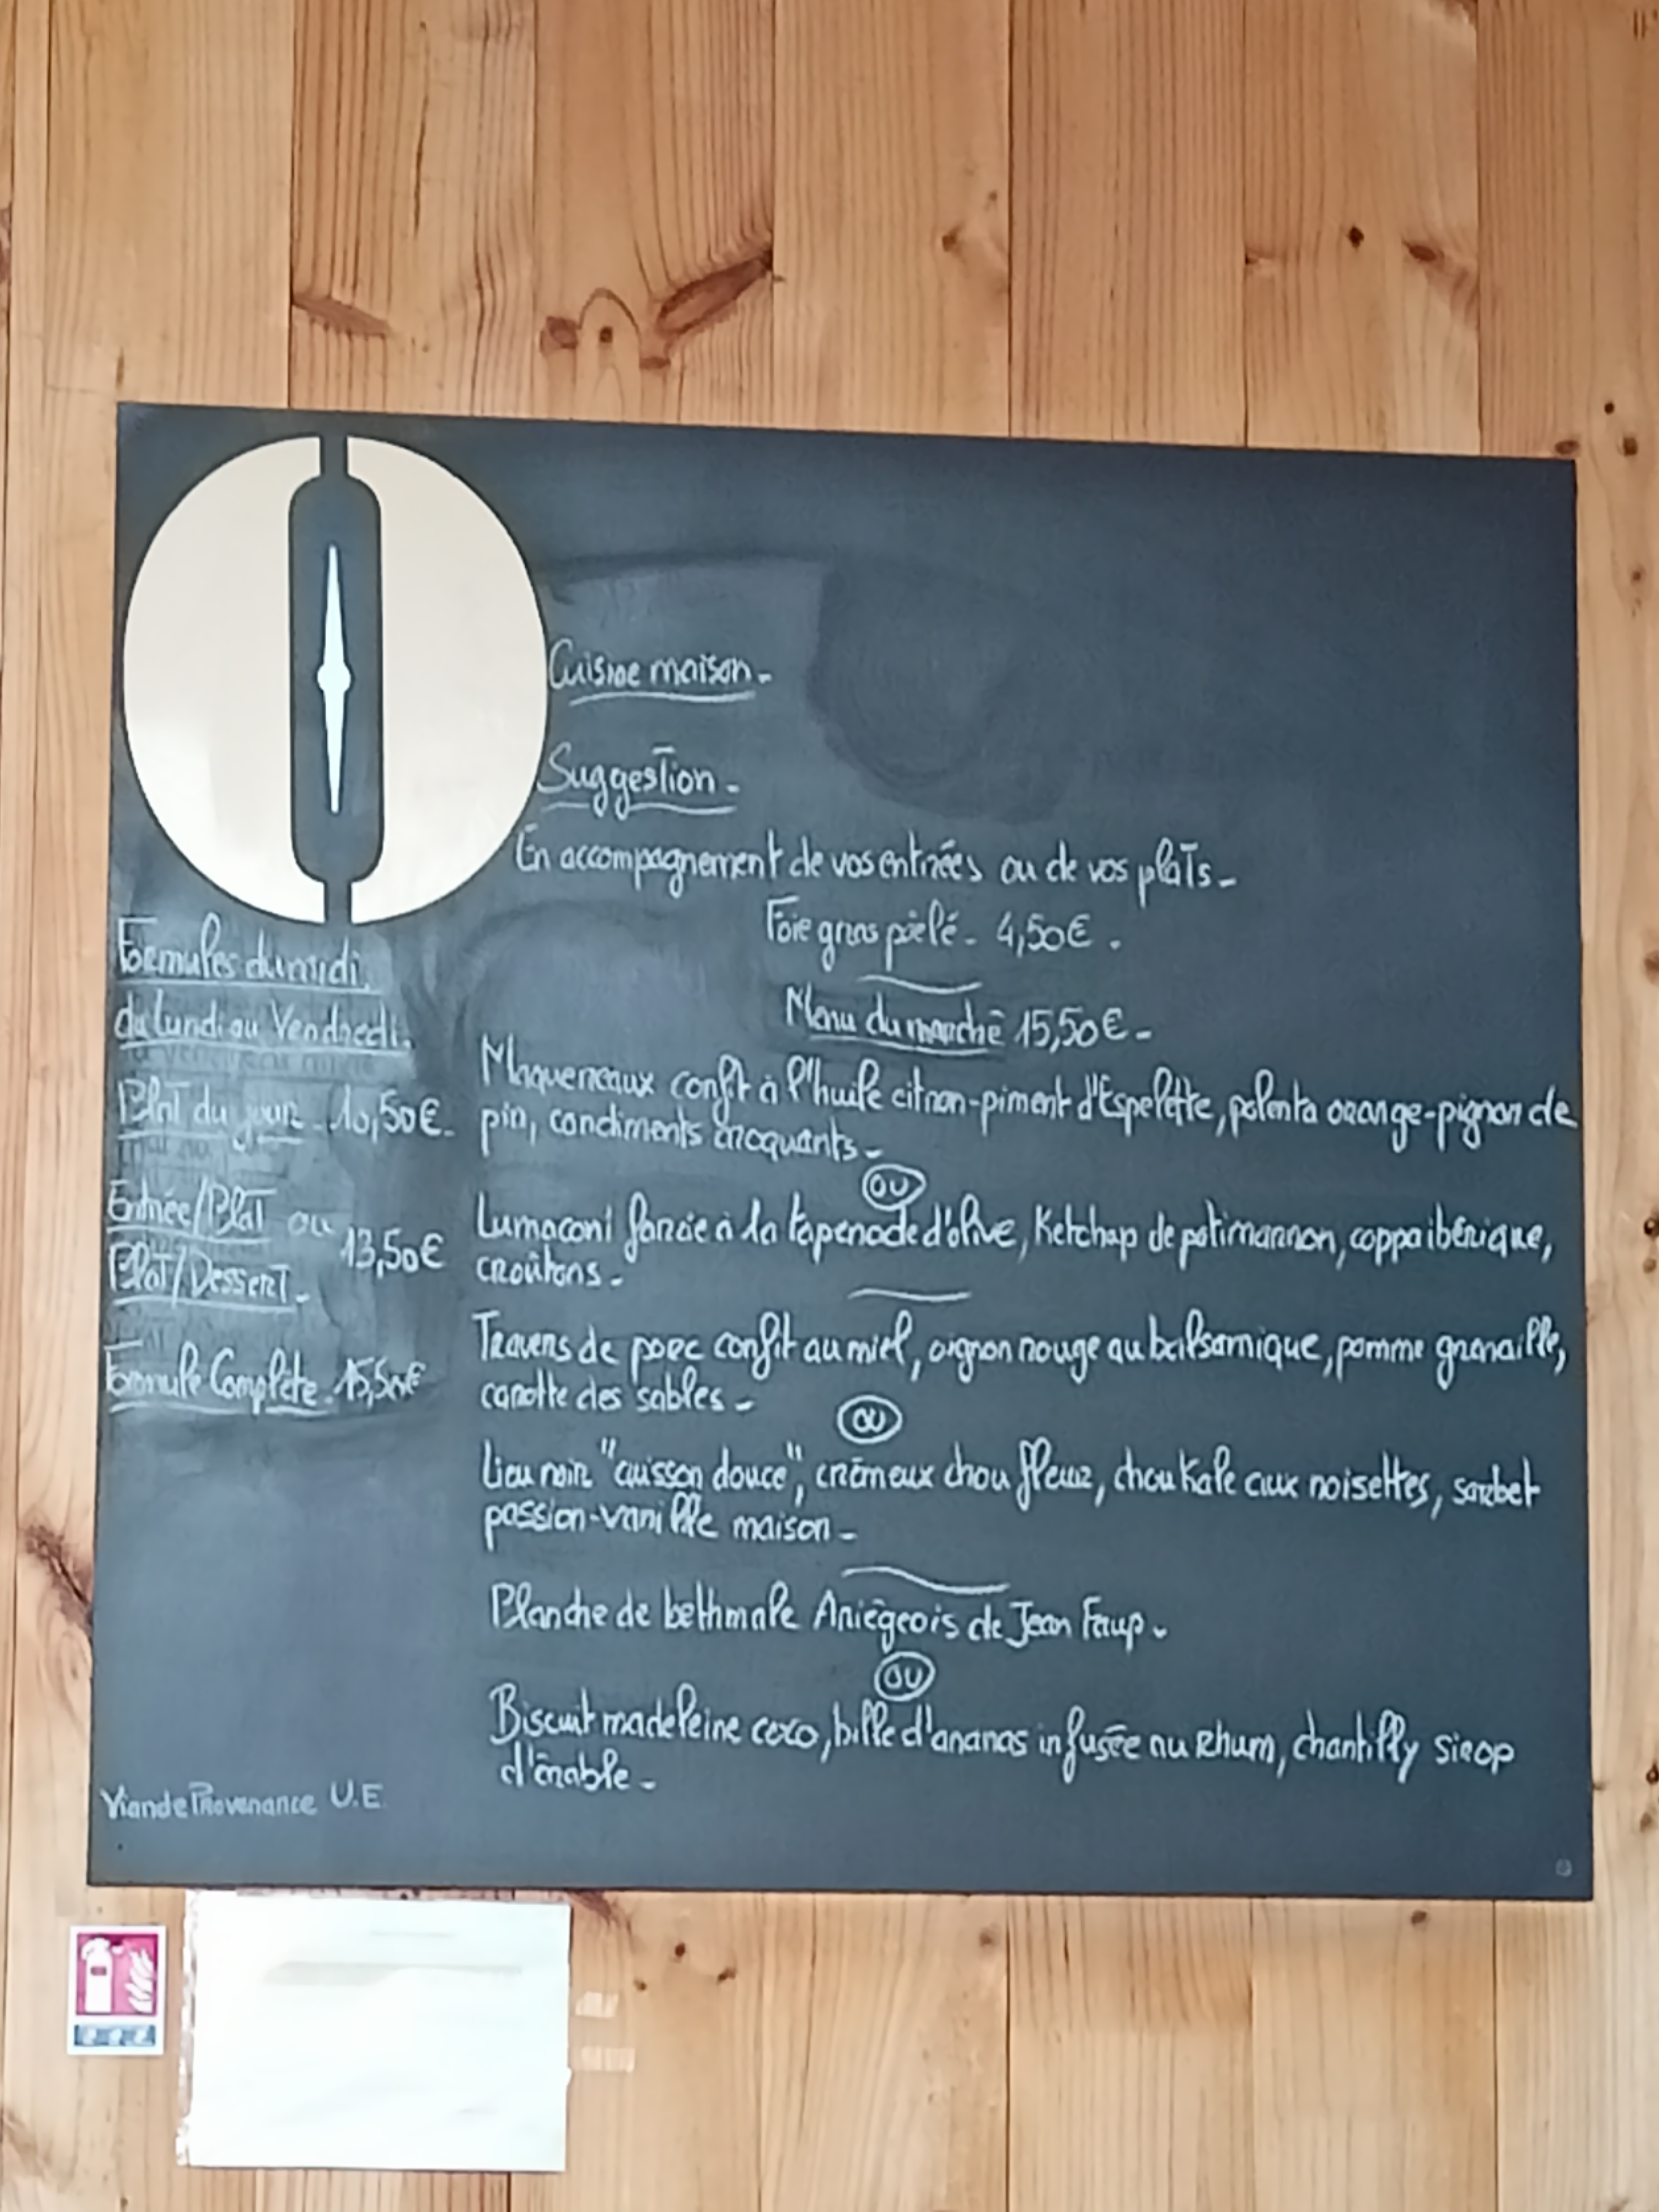 Cuisine maison -
Suggestion -
En accompagnement de vos entrées ou de vos plats -
Foie gras poêlé - 4,50€.
Menu du marché 15,50€ -
Maquereaux confit à l'huile citron-piment d'Espelette, polenta orange-pignon de
pin, condiments croquants -
ou
Lumaconi farcie à la tapenade d'olive, Ketchap de potimarron, coppa ibérique,
croûtons -
Travers de porc confit au miel, oignon rouge au balsamique, pomme grenaille,
carotte des sables -
ou
Lieu noir "cuisson douce", crémeux chou fleur, chou Kale aux noisettes, sorbet
passion-vanille maison -
Planche de bethmale Ariégeois de Jean Faup -
ou
Biscuit madeleine coco, bille d'ananas infusée au Rhum, chantilly sirop
d'érable -
Formules du midi,
du Lundi au Vendredi.
Plat du jour - 10,50€ -
Entrée/Plat ou
13,50€
Plat/Dessert -
Formule Complète - 15,50€
Viande Provenance U.E